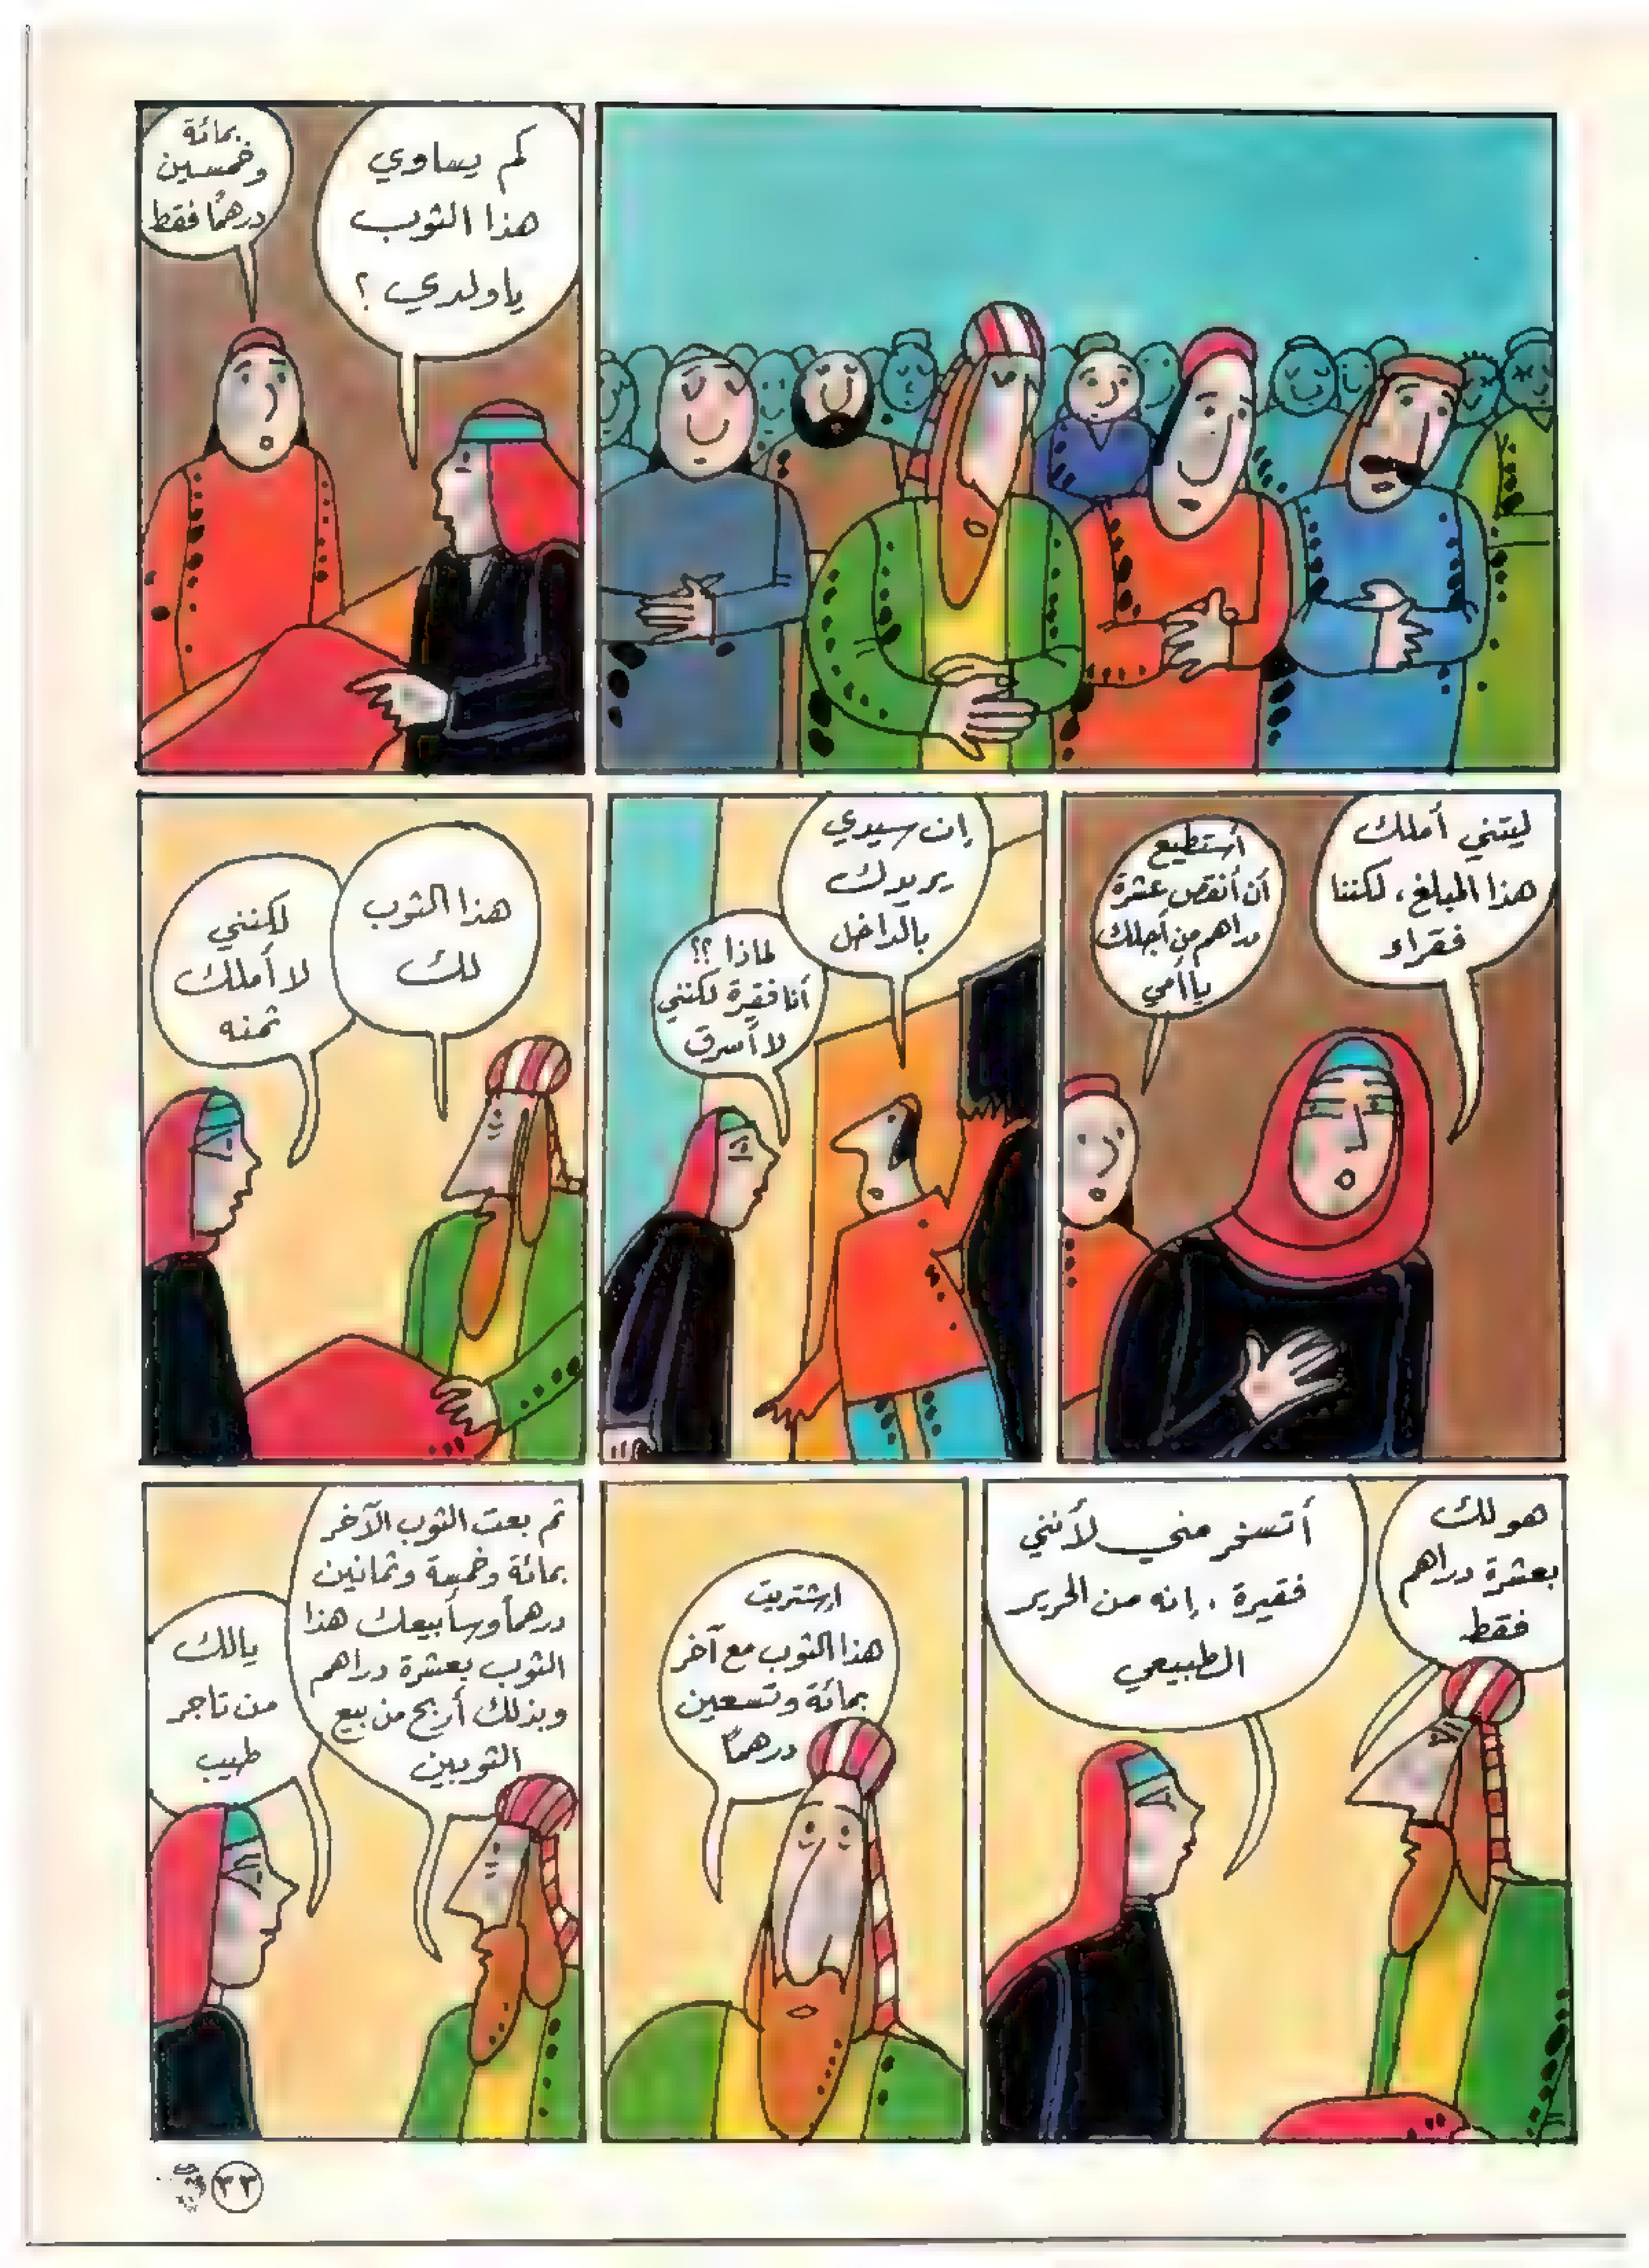 كم يساوي
هذا الثوب
ياولدي؟
بمائة
وخمسين
درهمًا فقط
ليتني أملك
هذا المبلغ، لكننا
فقراء
أستطيع
أن أنقص عشرة
دراهم من أجلك
يا أمي
إن سيدي
يريدك
بالداخل
لماذا؟؟
أنا فقيرة لكنني
لا أسرق
هذا الثوب
لك
لكنني
لا أملك
ثمنه
هو لك
بعشرة دراهم
فقط
أتسخر مني لأنني
فقيرة. إنه من الحرير
الطبيعي
اشتريت
هذا الثوب مع آخر
بمائة وتسعين
درهمًا
ثم بعت الثوب الآخر
بمائة وخمسة وثمانين
درهمًا وسأبيعك هذا
الثوب بعشرة دراهم
وبذلك أربح من بيع
الثوبين
يالك
من تاجر
طيب
٣٣